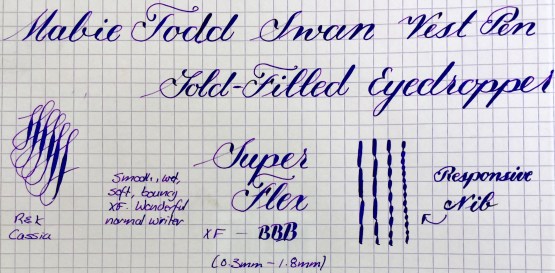 Mabie Todd Swan Vest Pen
Gold-Filled Eyedropper
Super
Flex
XF – BBB
(0.3mm – 1.8mm)
Smooth, wet,
soft, bouncy
XF. Wonderful
normal writer
R&K
Cassia
Responsive
Nib